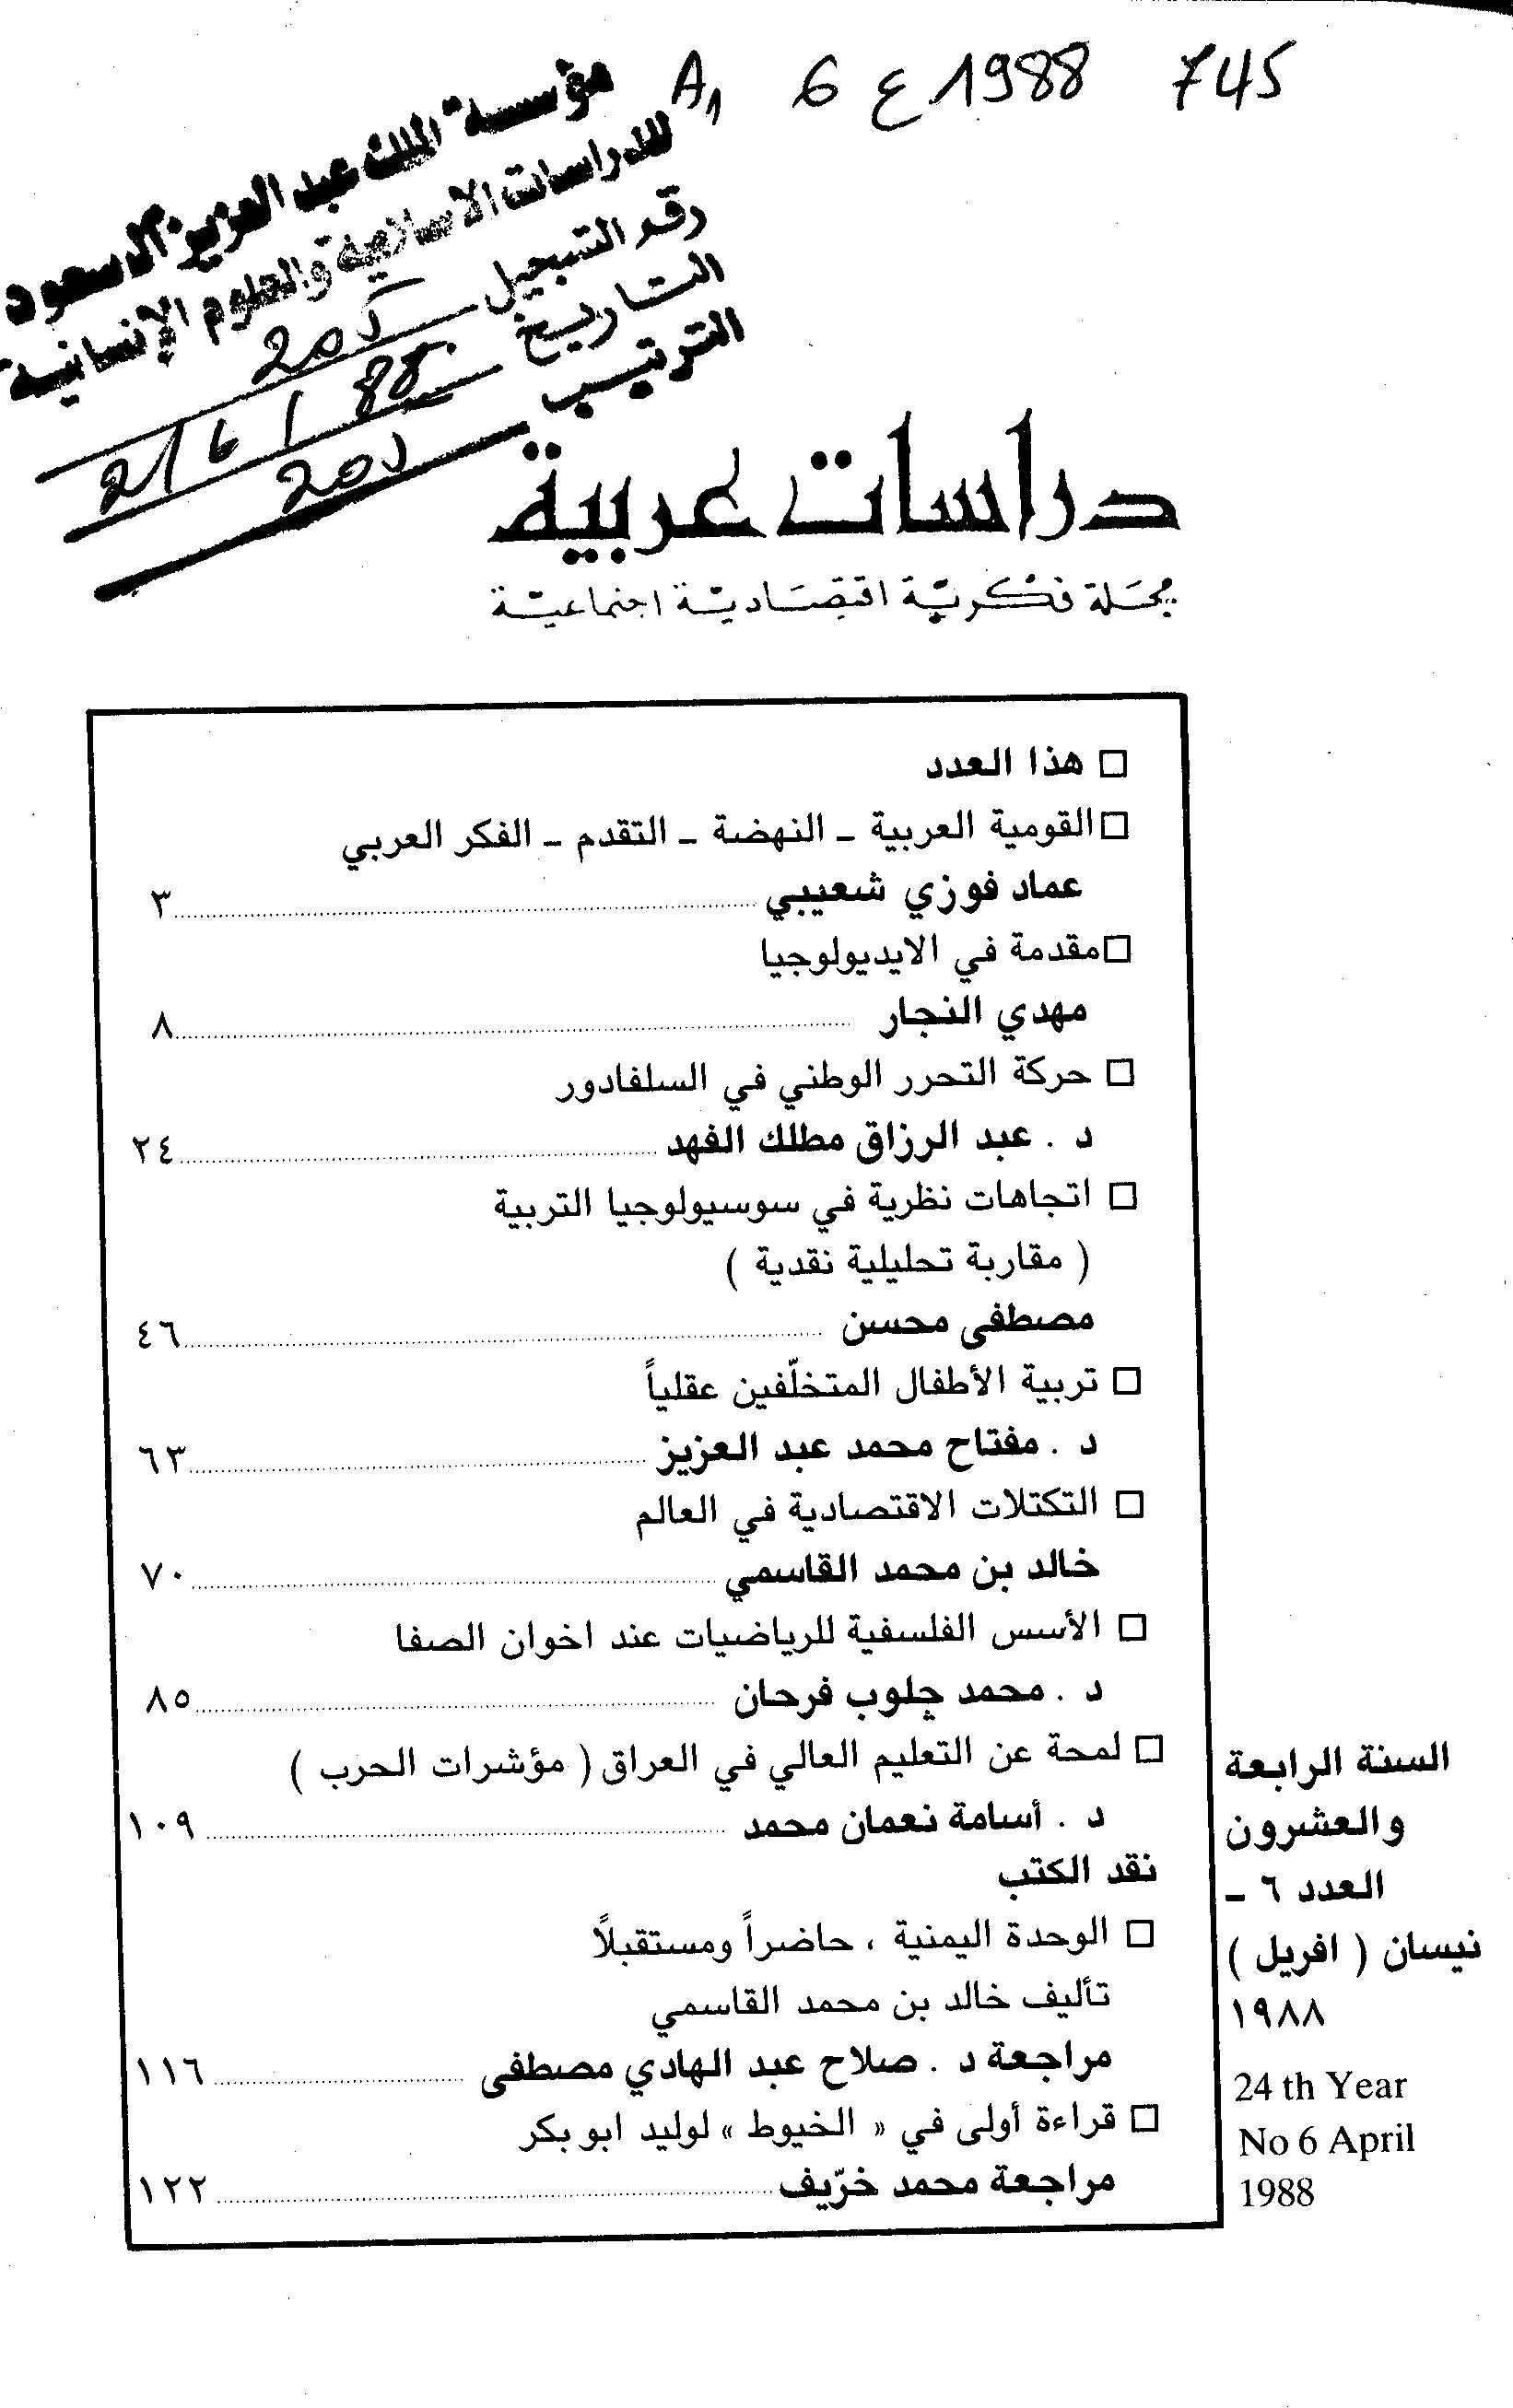 A1 6 ع 1988 745
مؤسسة الملك عبد العزيز آل سعود
للدراسات الاسلامية والعلوم الإنسانية
رقم التسجيل
التاريخ 2/6/88
الترتيب
دراسات عربية
مجلة فكرية اقتصادية اجتماعية
□ هذا العدد
□ القومية العربية - النهضة - التقدم - الفكر العربي
عماد فوزي شعيبي ٣
□ مقدمة في الايديولوجيا
مهدي النجار ٨
□ حركة التحرر الوطني في السلفادور
د . عبد الرزاق مطلك الفهد ٢٤
□ اتجاهات نظرية في سوسيولوجيا التربية
( مقاربة تحليلية نقدية )
مصطفى محسن ٤٦
□ تربية الأطفال المتخلّفين عقلياً
د . مفتاح محمد عبد العزيز ٦٣
□ التكتلات الاقتصادية في العالم
خالد بن محمد القاسمي ٧٠
□ الأسس الفلسفية للرياضيات عند اخوان الصفا
د . محمد جلوب فرحان ٨٥
□ لمحة عن التعليم العالي في العراق ( مؤشرات الحرب )
د . أسامة نعمان محمد ١٠٩
نقد الكتب
□ الوحدة اليمنية ، حاضراً ومستقبلاً
تأليف خالد بن محمد القاسمي
مراجعة د . صلاح عبد الهادي مصطفى ١١٦
□ قراءة أولى في « الخيوط » لوليد ابو بكر
مراجعة محمد خرّيف ١٢٢
السنة الرابعة
والعشرون
العدد ٦ -
نيسان ( افريل )
١٩٨٨
24 th Year
No 6 April
1988